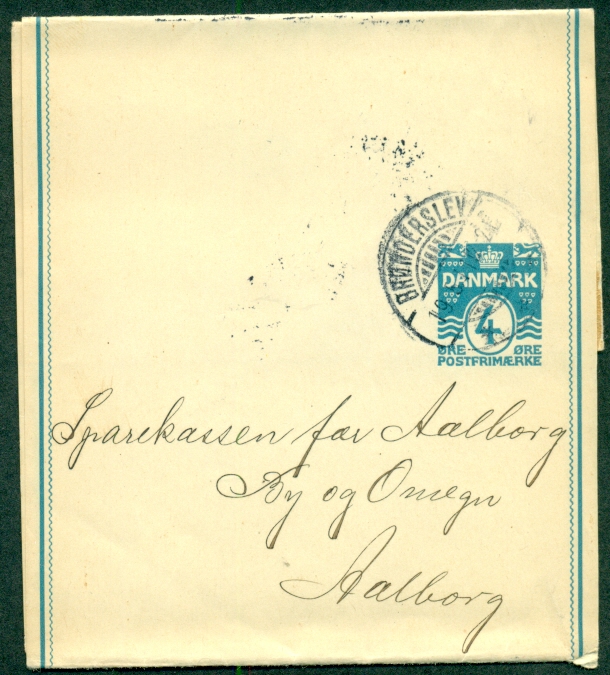 BRØNDERSLEV
DANMARK
4
ØRE ØRE
POSTFRIMÆRKE
Sparekassen for Aalborg
By og Omegn
Aalborg